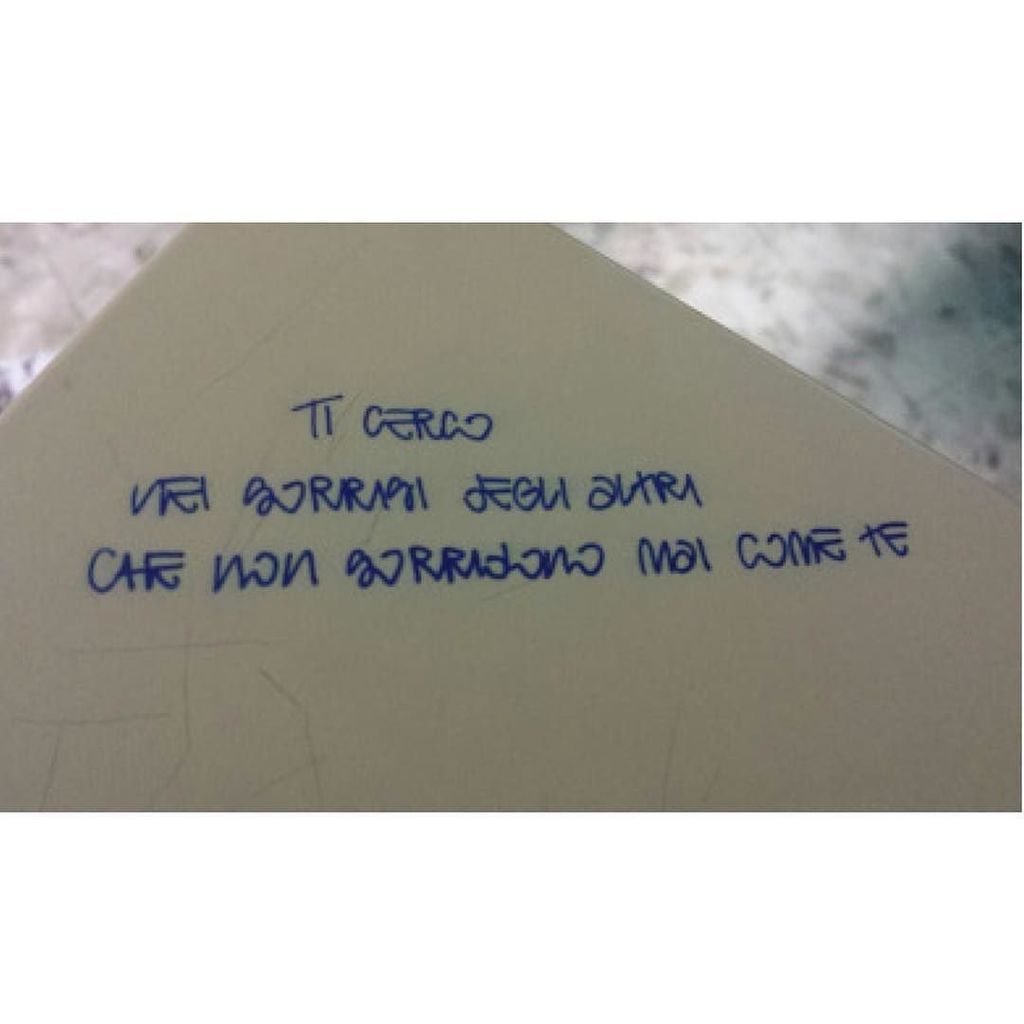 TI CERCO
NEI SORRISI DEGLI ALTRI
CHE NON SORRIDONO MAI COME TE